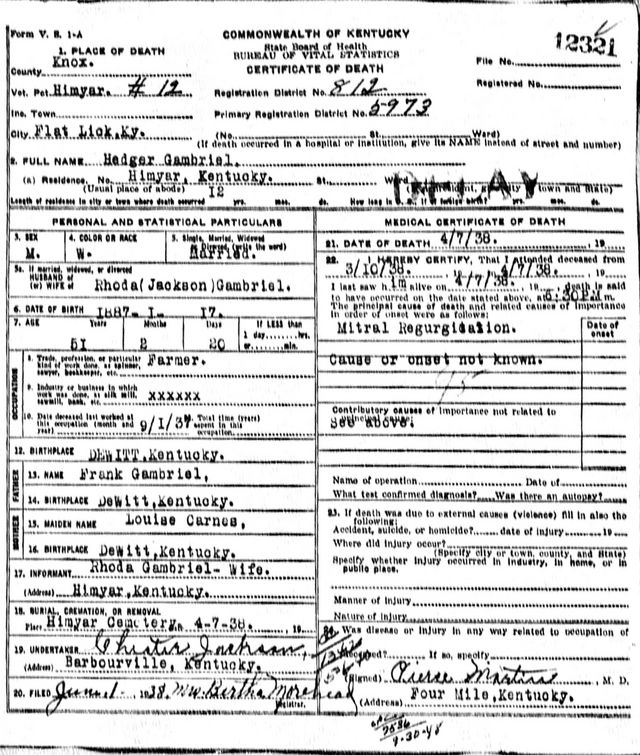 Form V. S. 1-A
COMMONWEALTH OF KENTUCKY
State Board of Health
BUREAU OF VITAL STATISTICS
CERTIFICATE OF DEATH
12321
1. PLACE OF DEATH
County Knox.
Vot. Pct. Himyar. # 12
Inc. Town
City Flat Lick, Ky.
Registration District No. 812
Primary Registration District No. 5973
File No.
Registered No.
(No. St. Ward)
(If death occurred in a hospital or institution, give its NAME instead of street and number)
2. FULL NAME Hedger Gambriel.
(a) Residence. No. Himyar, Kentucky. St. Ward
(Usual place of abode) 12 town and State)
Length of residence in city or town where death occurred yrs. mos. ds. How long in U. S. if of foreign birth? yrs. mos. ds.
PERSONAL AND STATISTICAL PARTICULARS
3. SEX M.
4. COLOR OR RACE W.
5. Single, Married, Widowed or Divorced (write the word) Married.
5a. If married, widowed, or divorced
HUSBAND of
(or) WIFE of Rhoda(Jackson)Gambriel.
6. DATE OF BIRTH 1887-1- 17.
7. AGE Years Months Days If LESS than
51 2 20 1 day, hrs. or min.
OCCUPATION
8. Trade, profession, or particular kind of work done, as spinner, sawyer, bookkeeper, etc. Farmer.
9. Industry or business in which work was done, as silk mill, sawmill, bank, etc. xxxxxx
10. Date deceased last worked at this occupation (month and year) 9/1/37 Total time (years) spent in this occupation
12. BIRTHPLACE DEWITT, Kentucky.
FATHER
13. NAME Frank Gambriel,
14. BIRTHPLACE DeWitt, Kentucky.
MOTHER
15. MAIDEN NAME Louise Carnes,
16. BIRTHPLACE DeWitt, Kentucky.
17. INFORMANT Rhoda Gambriel- Wife.
(Address) Himyar, Kentucky.
18. BURIAL, CREMATION, OR REMOVAL
Place Himyar Cemetery. 4-7-38. 19
19. UNDERTAKER Chester Jackson,
(Address) Barbourville, Kentucky.
20. FILED June 1- 1938. Mrs. Bertha Morehead
Registrar.
MEDICAL CERTIFICATE OF DEATH
21. DATE OF DEATH 4/7/38. 19
22. I HEREBY CERTIFY, That I attended deceased from
3/10/38. 19 to 4/7/38. 19
I last saw him alive on 4/7/38. 19 death is said
to have occurred on the date stated above, at 6:30P m.
The principal cause of death and related causes of importance
in order of onset were as follows:
Date of onset
Mitral Regurgidation.
Cause or onset not known.
95
Contributory causes of importance not related to
principal cause:
See above.
Name of operation Date of
What test confirmed diagnosis? Was there an autopsy?
23. If death was due to external causes (violence) fill in also the
following:
Accident, suicide, or homicide? date of injury 19
Where did injury occur?
(Specify city or town, county, and State)
Specify whether injury occurred in industry, in home, or in
public place.
Manner of injury
Nature of injury
24. Was disease or injury in any way related to occupation of
deceased? If so, specify
(Signed) Pierse Martin M. D.
(Address) Four Mile, Kentucky.